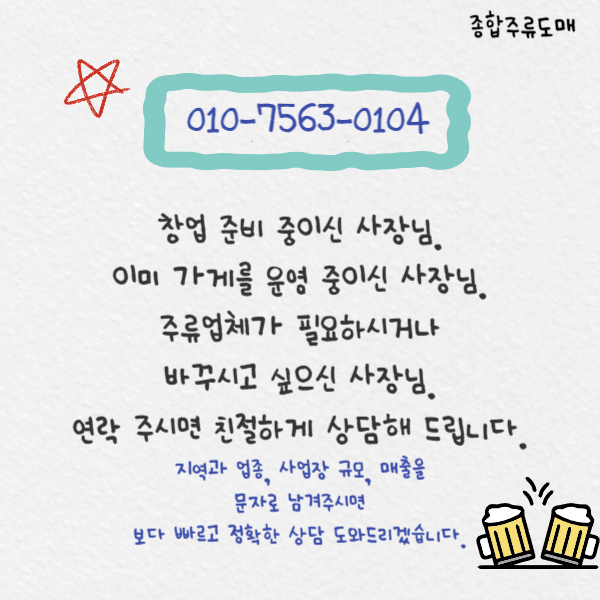 종합주류도매
010-7563-0104
창업 준비 중이신 사장님.
이미 가게를 운영 중이신 사장님.
주류업체가 필요하시거나
바꾸시고 싶으신 사장님.
연락 주시면 친절하게 상담해 드립니다.
지역과 업종, 사업장 규모, 매출을
문자로 남겨주시면
보다 빠르고 정확한 상담 도와드리겠습니다.